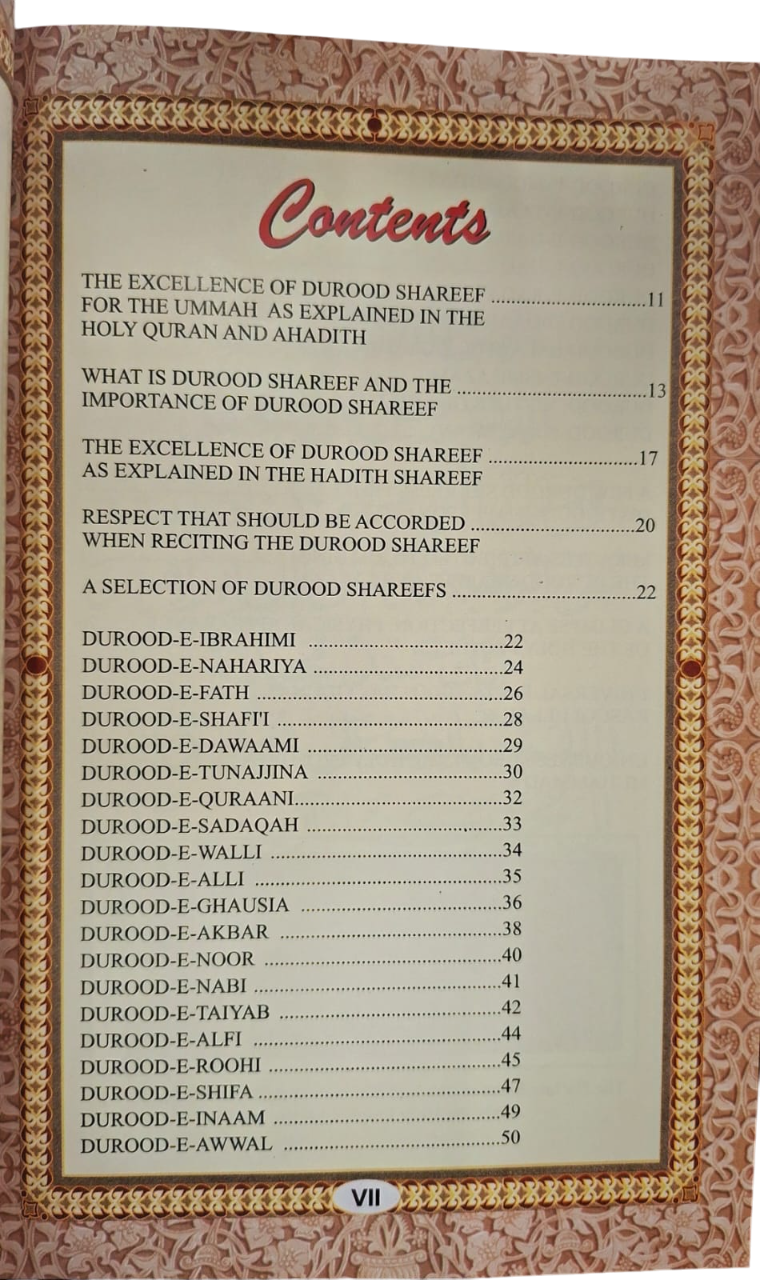 Contents
THE EXCELLENCE OF DUROOD SHAREEF ................................11
FOR THE UMMAH AS EXPLAINED IN THE
HOLY QURAN AND AHADITH
WHAT IS DUROOD SHAREEF AND THE .......................................13
IMPORTANCE OF DUROOD SHAREEF
THE EXCELLENCE OF DUROOD SHAREEF ...............................17
AS EXPLAINED IN THE HADITH SHAREEF
RESPECT THAT SHOULD BE ACCORDED ..................................20
WHEN RECITING THE DUROOD SHAREEF
A SELECTION OF DUROOD SHAREEFS ......................................22
DUROOD-E-IBRAHIMI ........................................22
DUROOD-E-NAHARIYA .......................................24
DUROOD-E-FATH ...................................................26
DUROOD-E-SHAFI'I ...............................................28
DUROOD-E-DAWAAMI ........................................29
DUROOD-E-TUNAJJINA ......................................30
DUROOD-E-QURAANI...........................................32
DUROOD-E-SADAQAH ........................................33
DUROOD-E-WALLI ................................................34
DUROOD-E-ALLI ...................................................35
DUROOD-E-GHAUSIA .........................................36
DUROOD-E-AKBAR ..............................................38
DUROOD-E-NOOR .................................................40
DUROOD-E-NABI ...................................................41
DUROOD-E-TAIYAB ..............................................42
DUROOD-E-ALFI ...................................................44
DUROOD-E-ROOHI ................................................45
DUROOD-E-SHIFA ..................................................47
DUROOD-E-INAAM ...............................................49
DUROOD-E-AWWAL .............................................50
VII